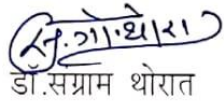 स.गो.थोरात
डॉ.संग्राम थोरात